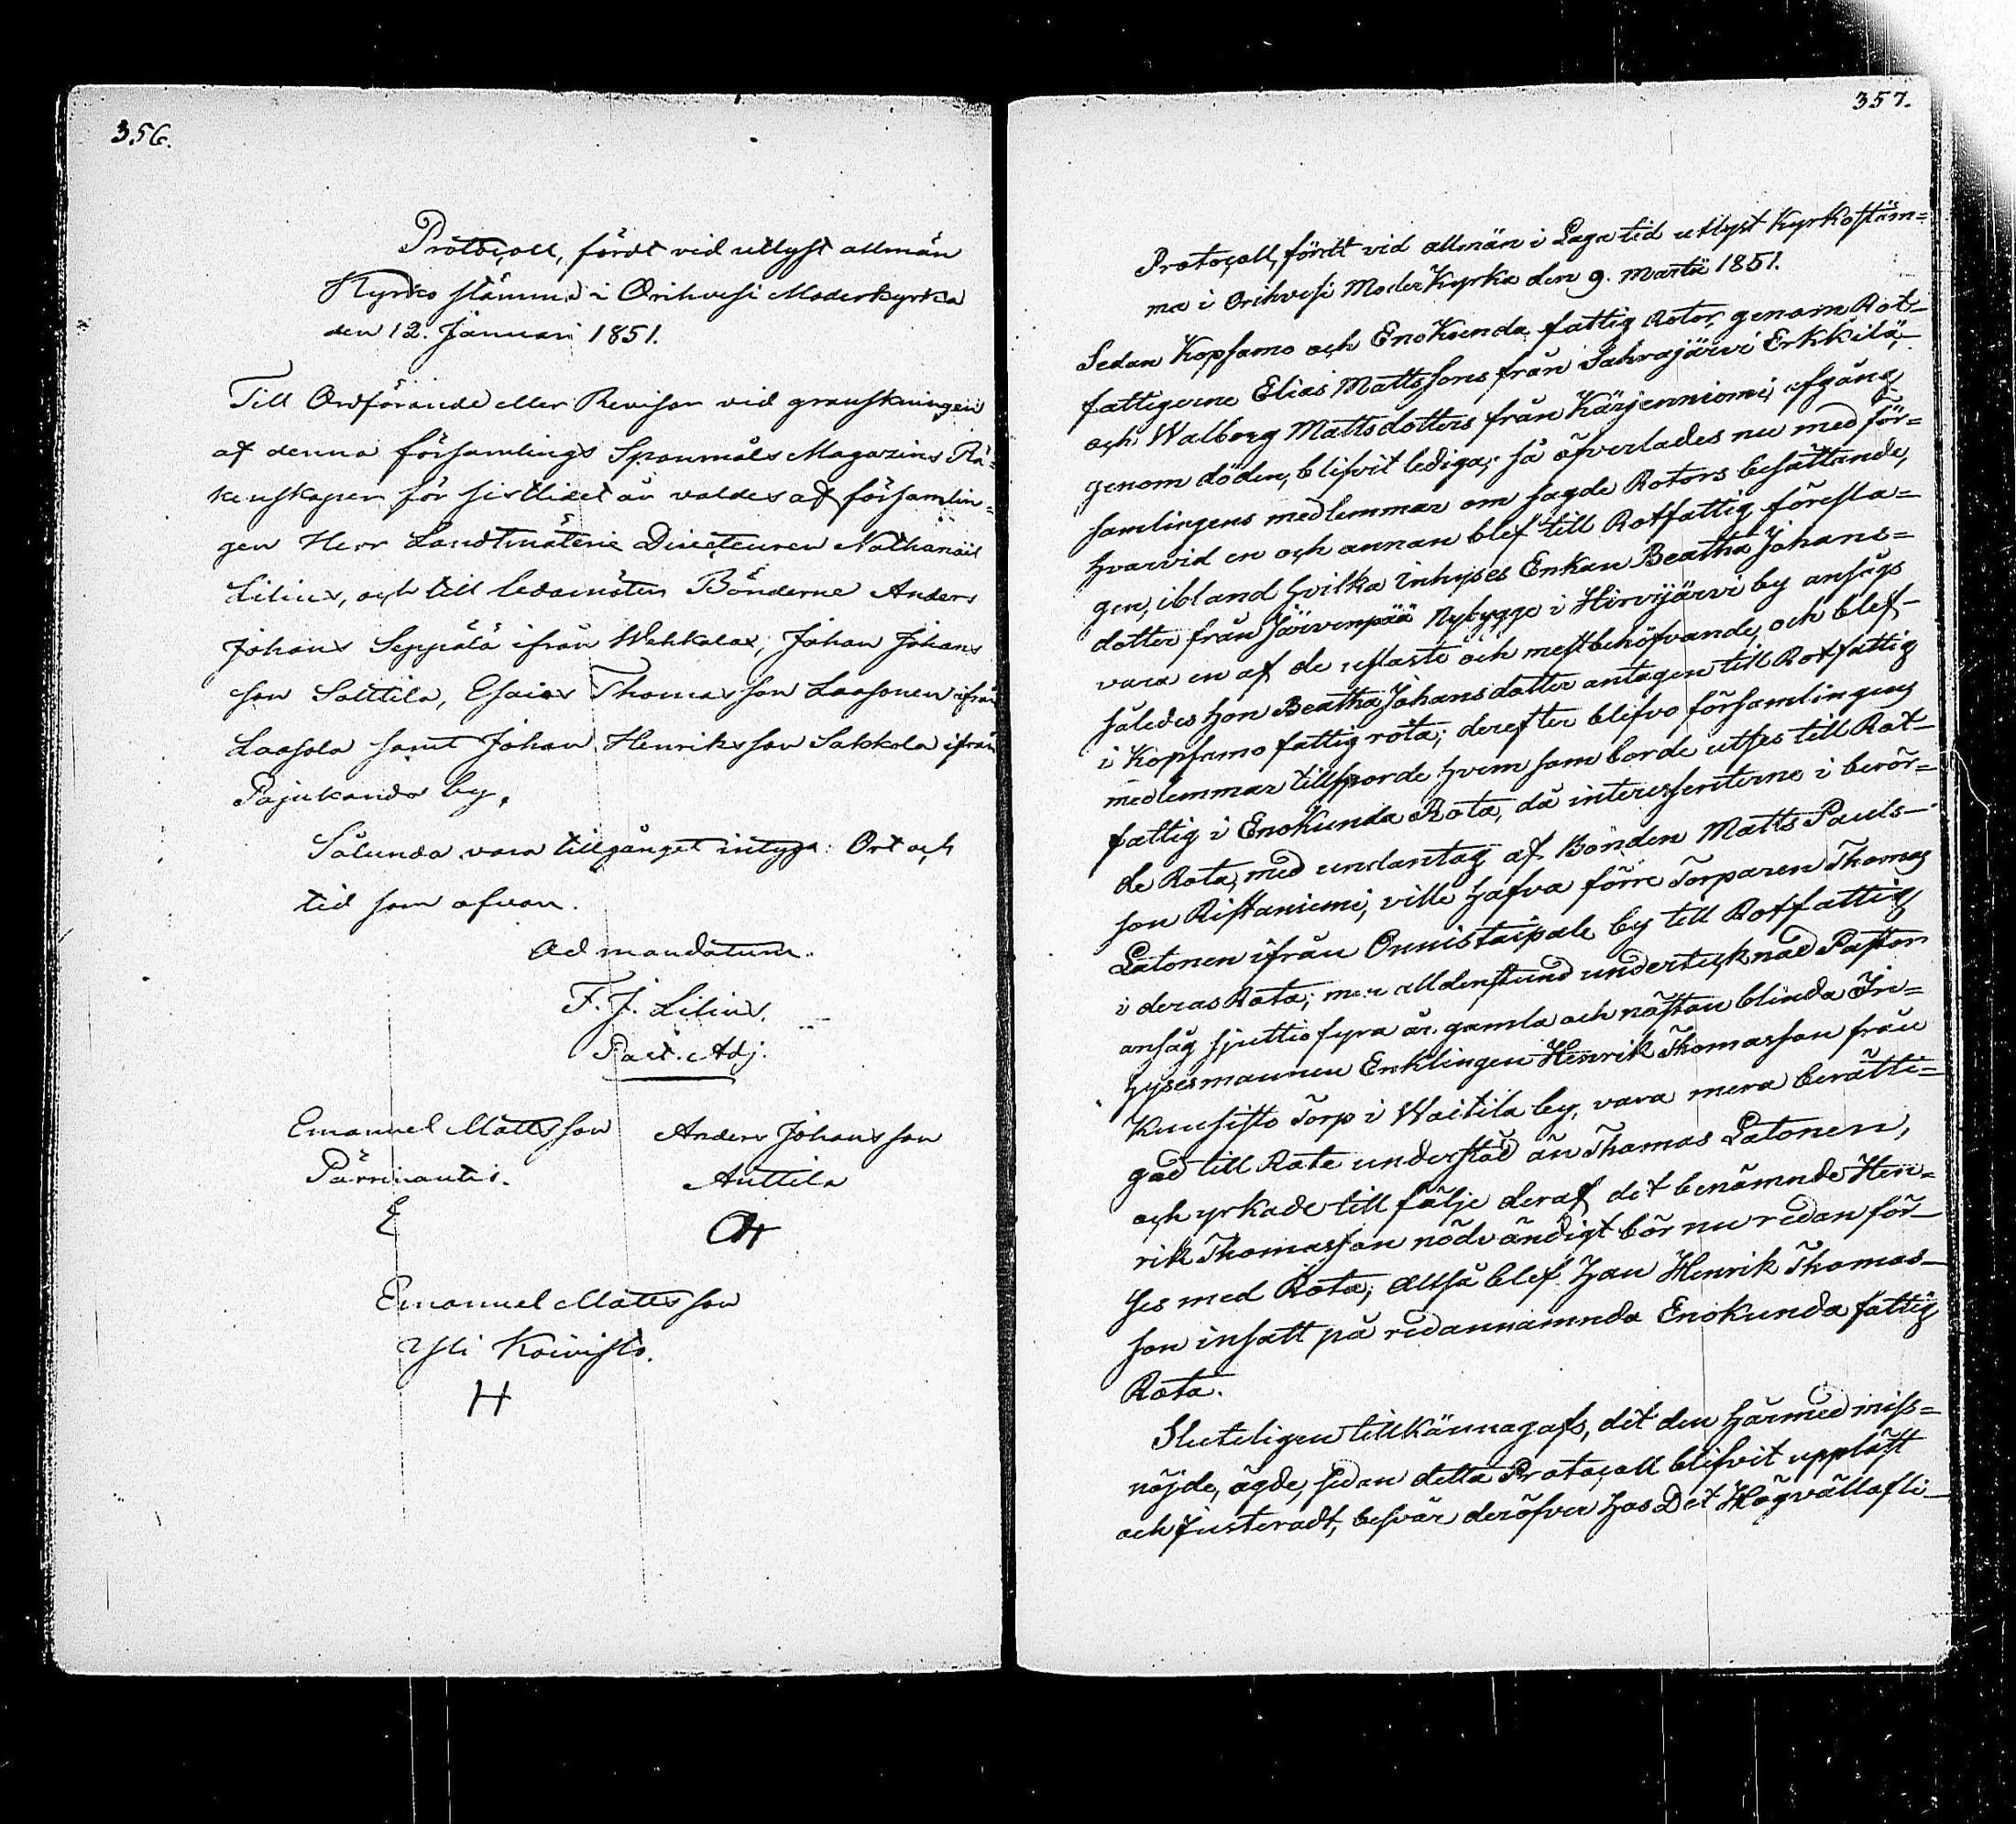 356.
Protocoll, fördt vid utlyst allmän
Kyrko stämma i Orihvesi Moderkyrka
den 12. Januari 1851.
Till Ordförande eller Revisor vid granskningen
af denna församlings Spanmåls Magazins Rä=
kenskaper för sistlidet år valdes af församlin=
gen Herr Landtmäterie Directeuren Nathanaël
Lilius, och till ledamöter Bönderne Anders
Johans Seppälä ifrån Wehkalax, Johan Johans
son Salttila, Esaias Thomasson Laasonen ifrån
Laasola samt Johan Henriksson Sakkola ifrån
Pajukanda by.
Sålunda vara tillgånget intyga: Ort och
tid som ofvan.
Ad mandatum.
F. J. Lilius.
Past. Adj.
Emanuel Mattsson Anders Johansson
Pärrinantti. Anttila
E AH
Emanuel Mattsson
Yli Koivisto.
H
357.
Protocoll, fördt vid allmän i Laga tid utlyst Kyrkostäm=
ma i Orihvesi ModerKyrka den 9. Martii 1851.
Sedan Kopsamo och EnoKunda fattig Rotor, genom Rot-
fattigerne Elias Mattssons från Sahrajärvi Erkkilä,
och Walborg Mattsdotters från Kärjenniemi, afgång
genom döden, blifvit lediga; så öfverlades nu med för=
samlingens medlemmar om sagde Rotors besättande,
hvarvid en och annan blef till Rotfattig föresla=
gen, ibland hvilka Inhyses Enkan Beatha Johans=
dotter från Järvenpää Nybygge i Hirvijärvi by ansågs
vara en af de uslaste och mestbehöfvande, och blef
således hon Beatha Johansdotter antagen till Rotfattig
i Kopsamo fattig rota; derefter blefvo församlingens
medlemmar tillsporde hvem som borde utses till Rot-
fattig i EnoKunda Rota, då interessenterne i berör=
de Rota, med undantag af Bonden Matts Pauls-
son Ristaniemi, ville hafva förre Torparen Thomas
Latonen ifrån Onnistaipale by till Rotfattig
i deras Rota; men alldenstund undertecknad Pastor
ansåg sjuttiofyra år gamla och nästan blinda In=
hysesmannen Enklingen Henrik Thomasson från
Kuusisto Torp i Waitila by, vara mera berätti=
gad till Rote understöd än Thomas Latonen,
och yrkade till följe deraf det benämnde Hen=
rik Thomasson nödvändigt bör nu redan för-
ses med Rota; Altså blef han Henrik Thomas-
son insatt på redannämnda Enokunda fattig
Rota.
Sluteligen tillkännagafs, det den härmed miss=
nöjde, ägde, sedan detta Protocoll blifvit uppläst
och Justeradt, besvär deröfver hos Det Högvällofli-